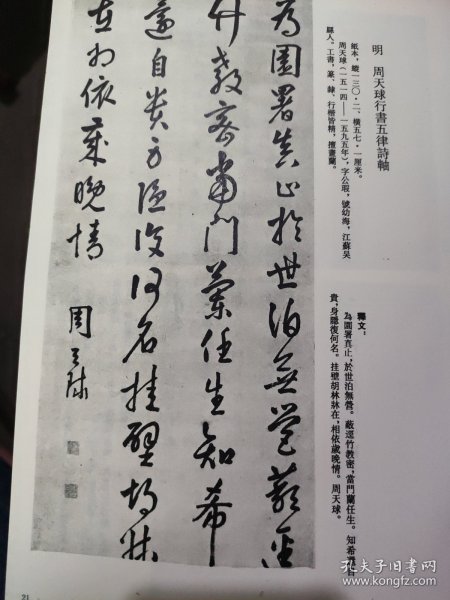 明　周天球行書五律詩軸
紙本，縱一三〇·二、橫五七·一厘米。
周天球（一五一四——一五九五年），字公瑕，號幼海，江蘇吴
縣人。工書，篆、隸、行楷皆精，擅畫蘭。
釋文：
為園署真止，於世泊無營。蔽逕竹教密，當門蘭任生。知希
貴，身隱復何名。挂壁胡林牀在，相依歲晚情。周天球。
為園署真止於世泊無營蔽逕
竹教密當門蘭任生知希
還自貴方隱復何名挂壁胡牀
在相依歲晚情
周天球
21
孔夫子旧书网
www.kongfz.com